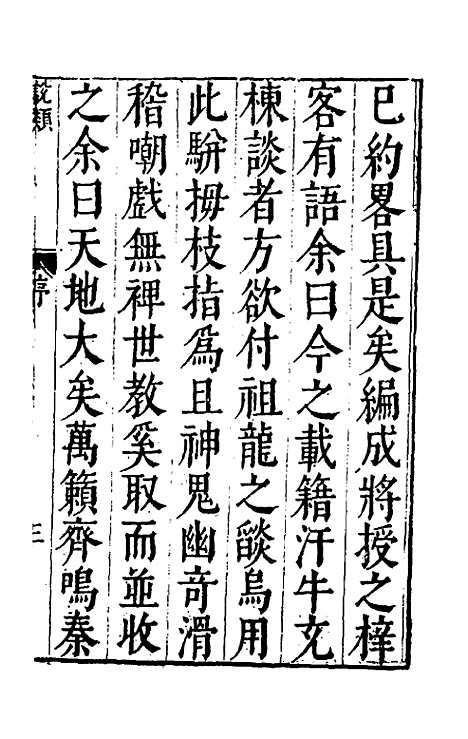 已約畧具是矣編成將授之梓
客有語余曰今之載籍汗牛充
棟談者方欲付祖龍之燄烏用
此駢拇枝指爲且神鬼幽奇滑
稽嘲戲無裨世教奚取而並收
之余曰天地大矣萬籟齊鳴秦
説類
序
三